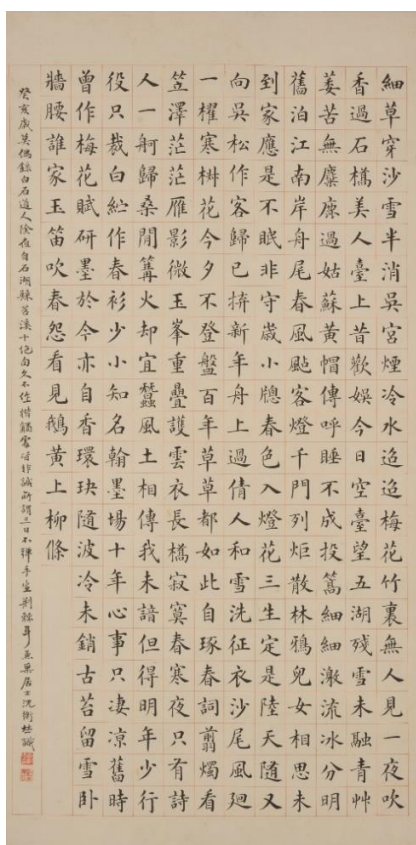 細草穿沙雪半消吳宮煙冷水迢迢梅花竹裏無人見一夜吹
香過石橋美人臺上昔歡娛今日空臺望五湖殘雪未融青艸
萋苦無麋鹿過姑蘇黃帽傳呼睡不成投篙細細激流冰分明
舊泊江南岸舟尾春風颭客燈千門列炬散林鴉兒女相思未
到家應是不眠非守歲小牕春色入燈花三生定是陸天隨又
向吳松作客歸已拚新年舟上過倩人和雪洗征衣沙尾風迴
一櫂寒椒花今夕不登盤百年草草都如此自琢春詞翦燭看
笠澤茫茫雁影微玉峯重疊護雲衣長橋寂寞春寒夜只有詩
人一舸歸桑間篝火却宜蠶風土相傳我未諳但得明年少行
役只裁白紵作春衫少小知名翰墨場十年心事只凄涼舊時
曾作梅花賦研墨於今亦自香環玦隨波冷未銷古苔留雪臥
牆腰誰家玉笛吹春怨看見鵝黃上柳條
癸亥歲莫偶錄白石道人除夜自石湖歸苕溪十絕句久不作楷觸處皆拙誠所謂三日不彈手生荆棘耳居士沈衛並識